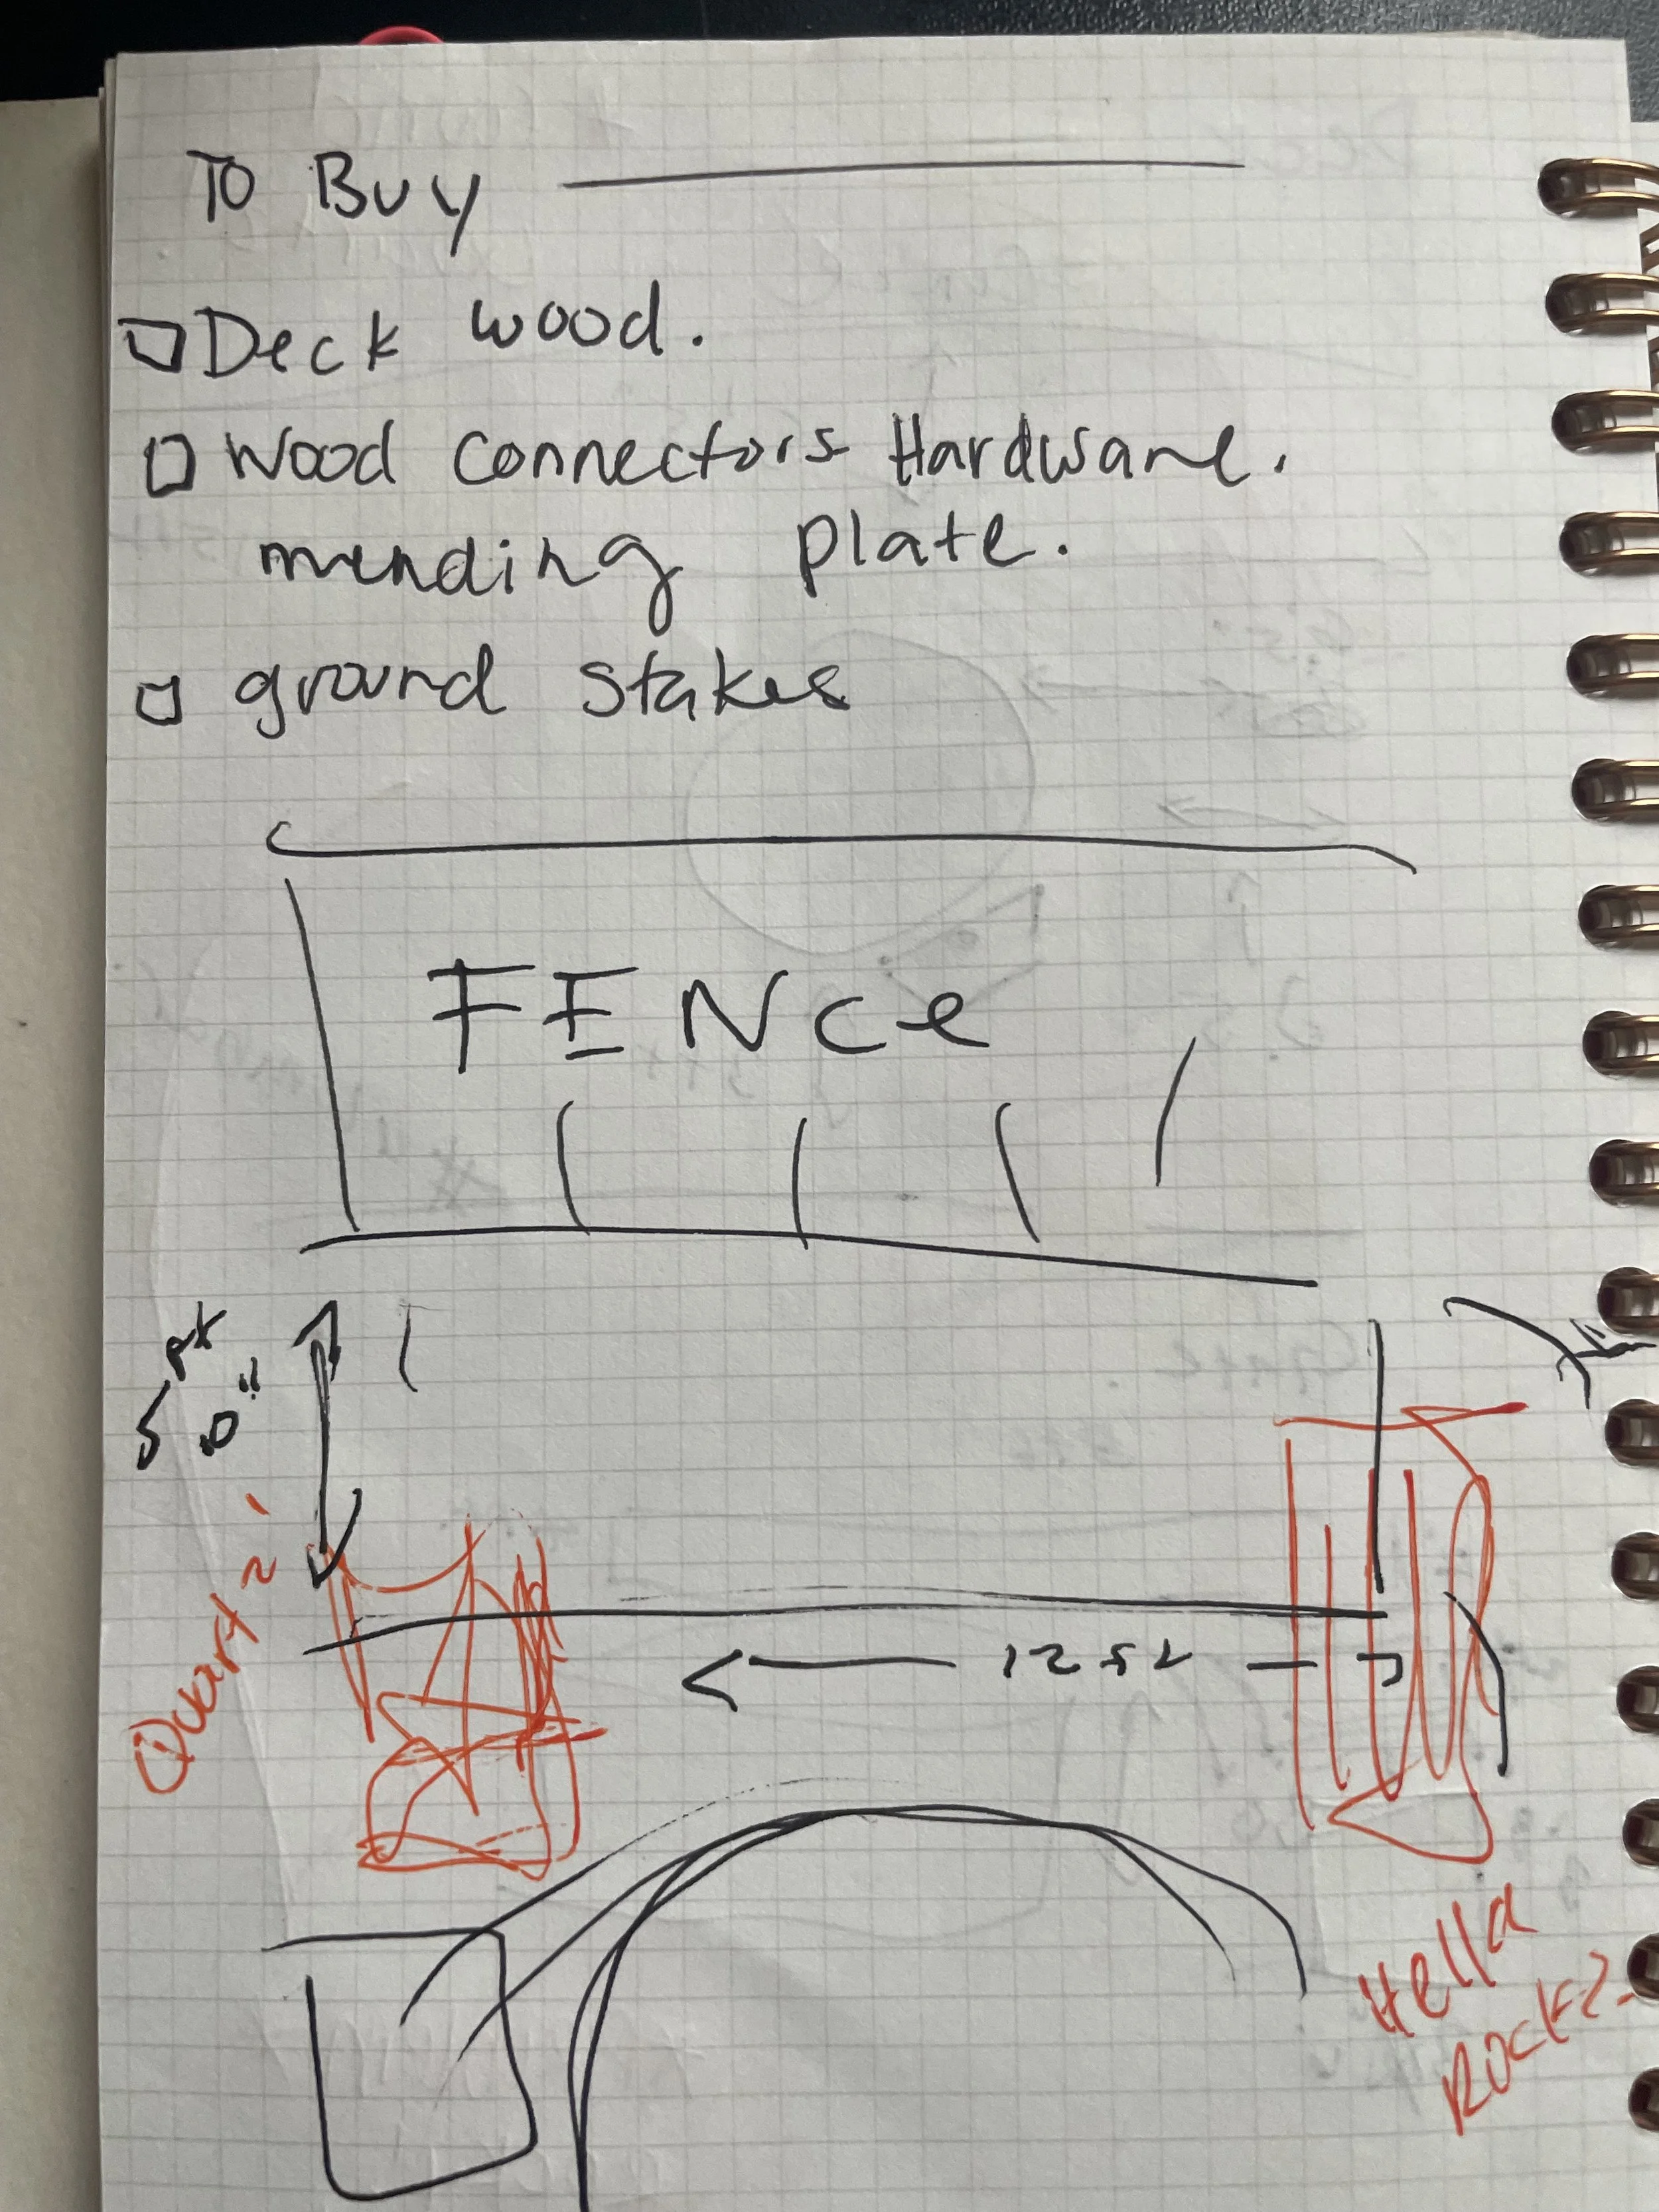 To Buy
Deck wood.
Wood connectors Hardware.
mending plate.
ground stakes
FENce
5 0"
Quartz
Hella
Rocks